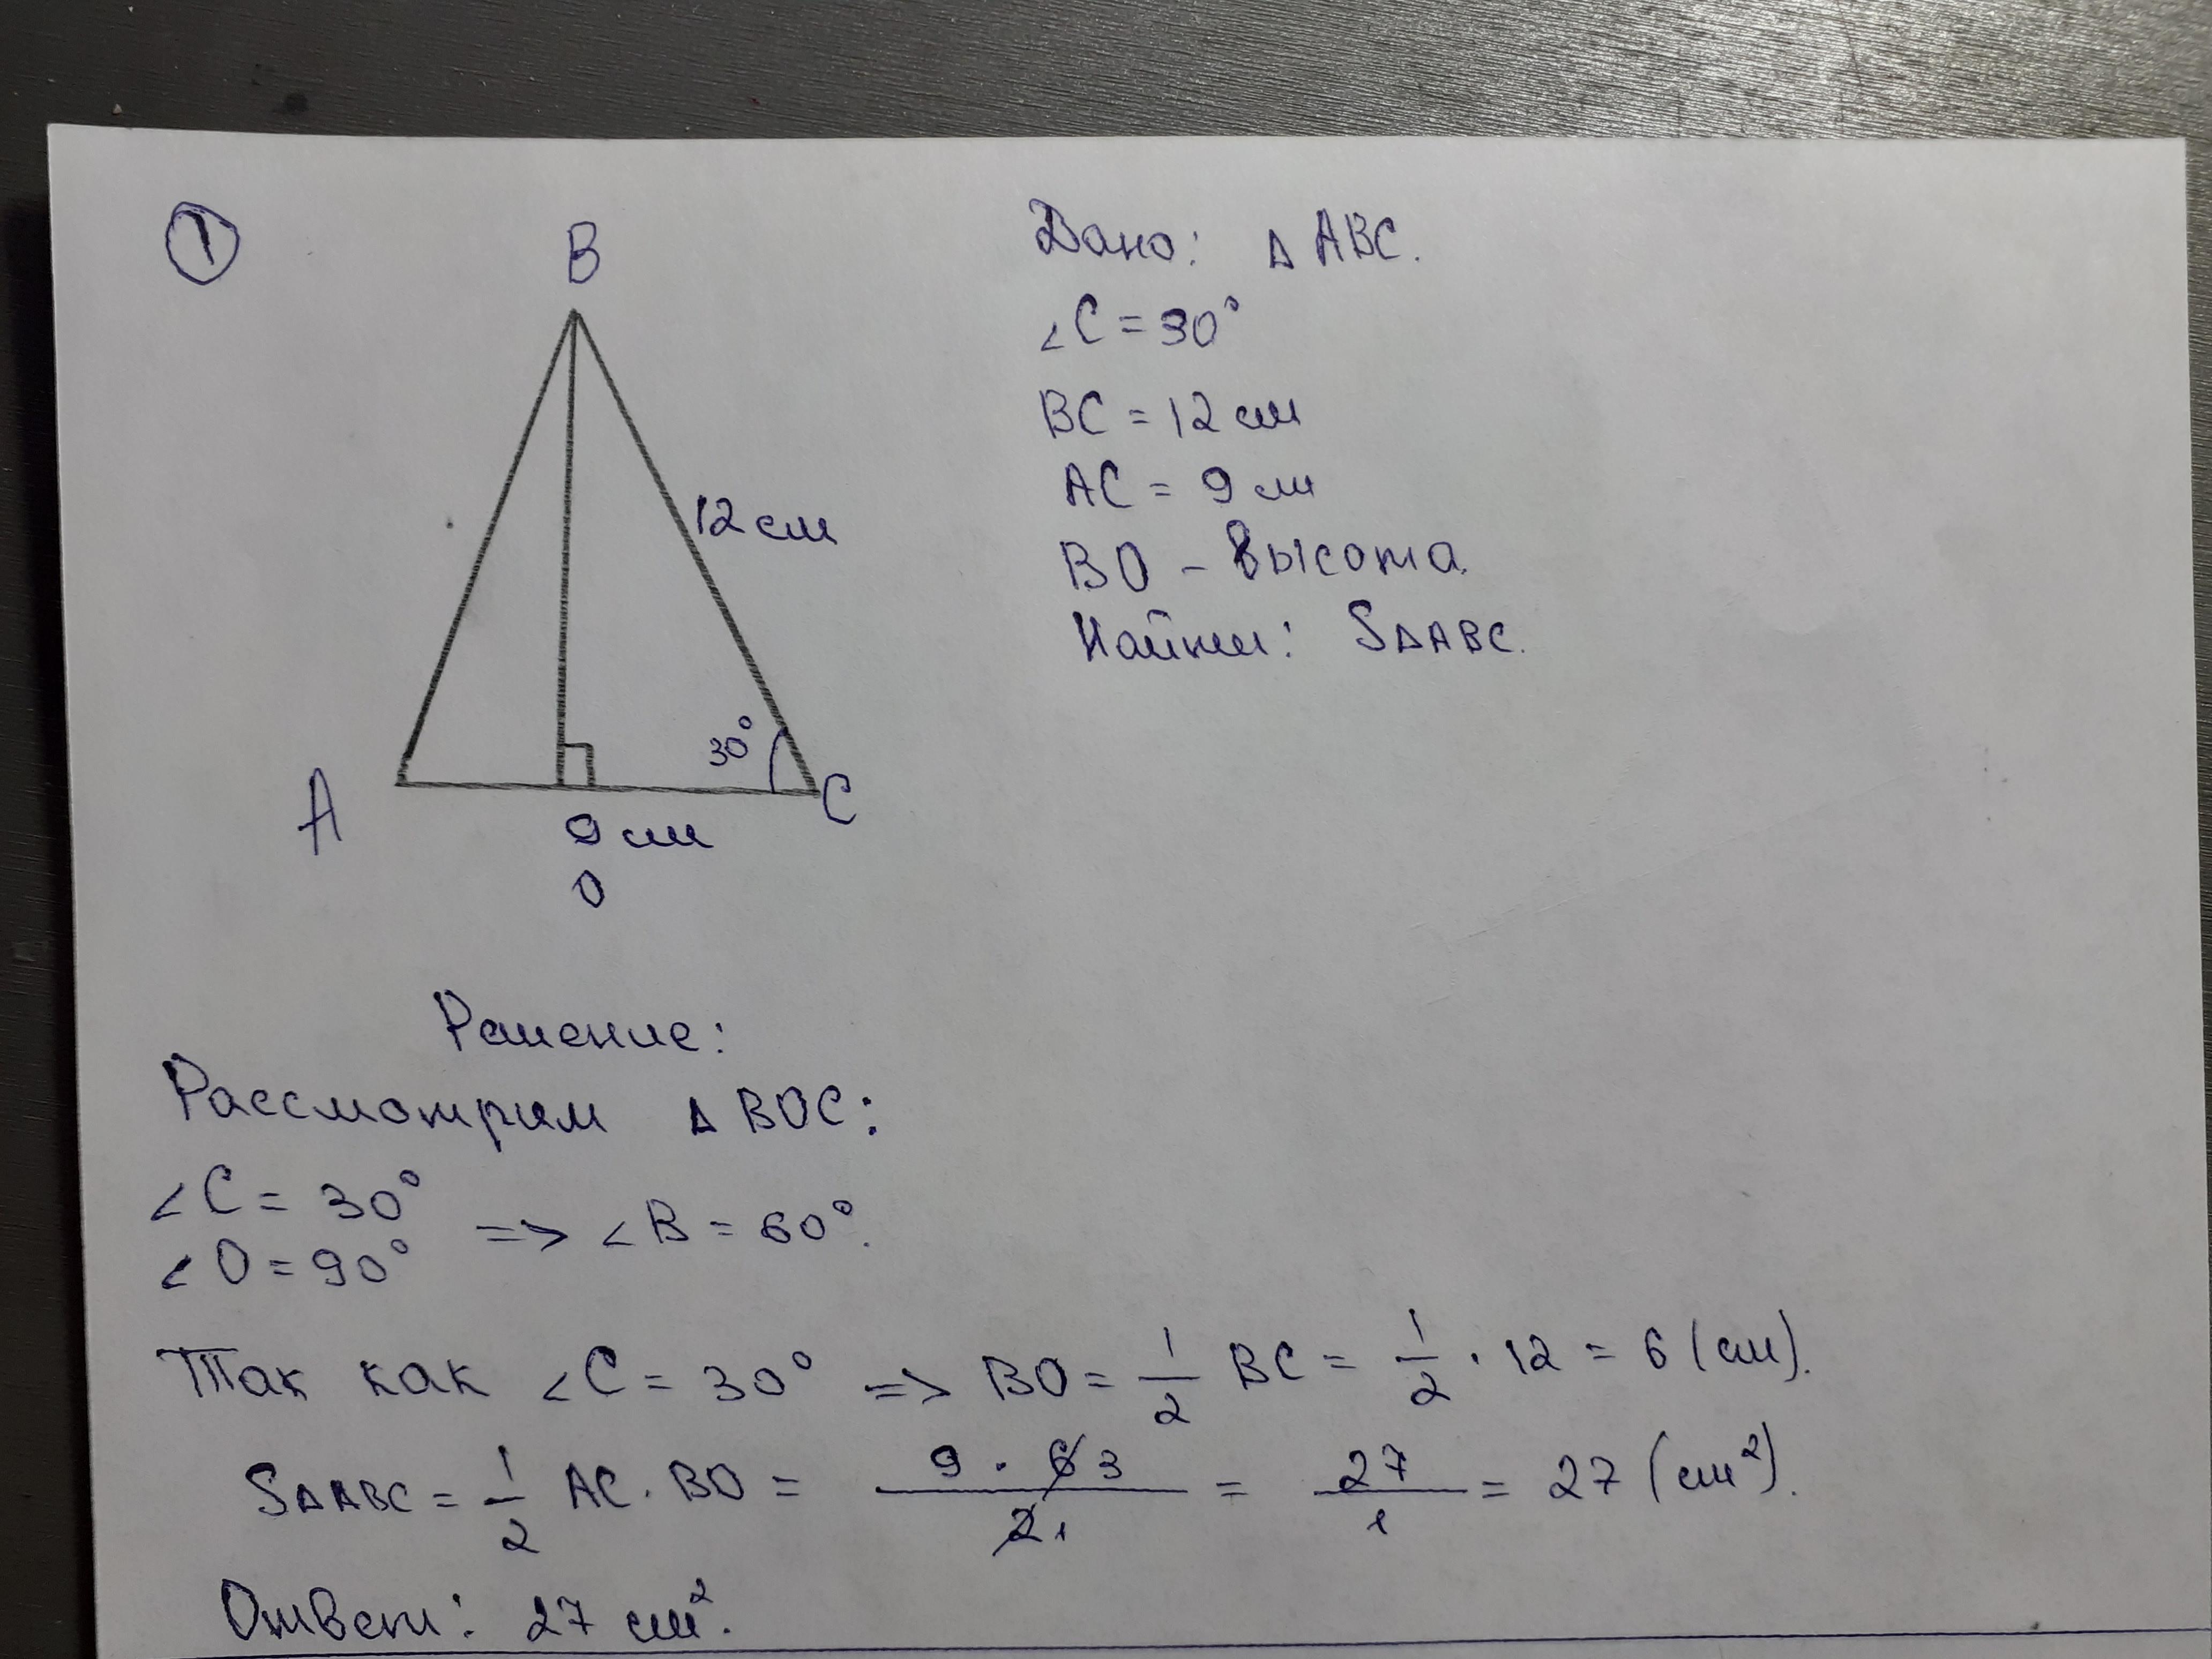 1
B
12 см
30°
A
C
9 см
O
Дано: Δ ABC.
∠C = 30°
BC = 12 см
AC = 9 см
BO – высота.
Найти: SΔABC.
Решение:
Рассмотрим Δ BOC:
∠C = 30°
∠O = 90°
=> ∠B = 60°.
Так как ∠C = 30° => BO = 1/2 BC = 1/2 · 12 = 6 (см).
SΔABC = 1/2 AC · BO = 9 · 6 3 / 2 1 = 27/1 = 27 (см²).
Ответ: 27 см².